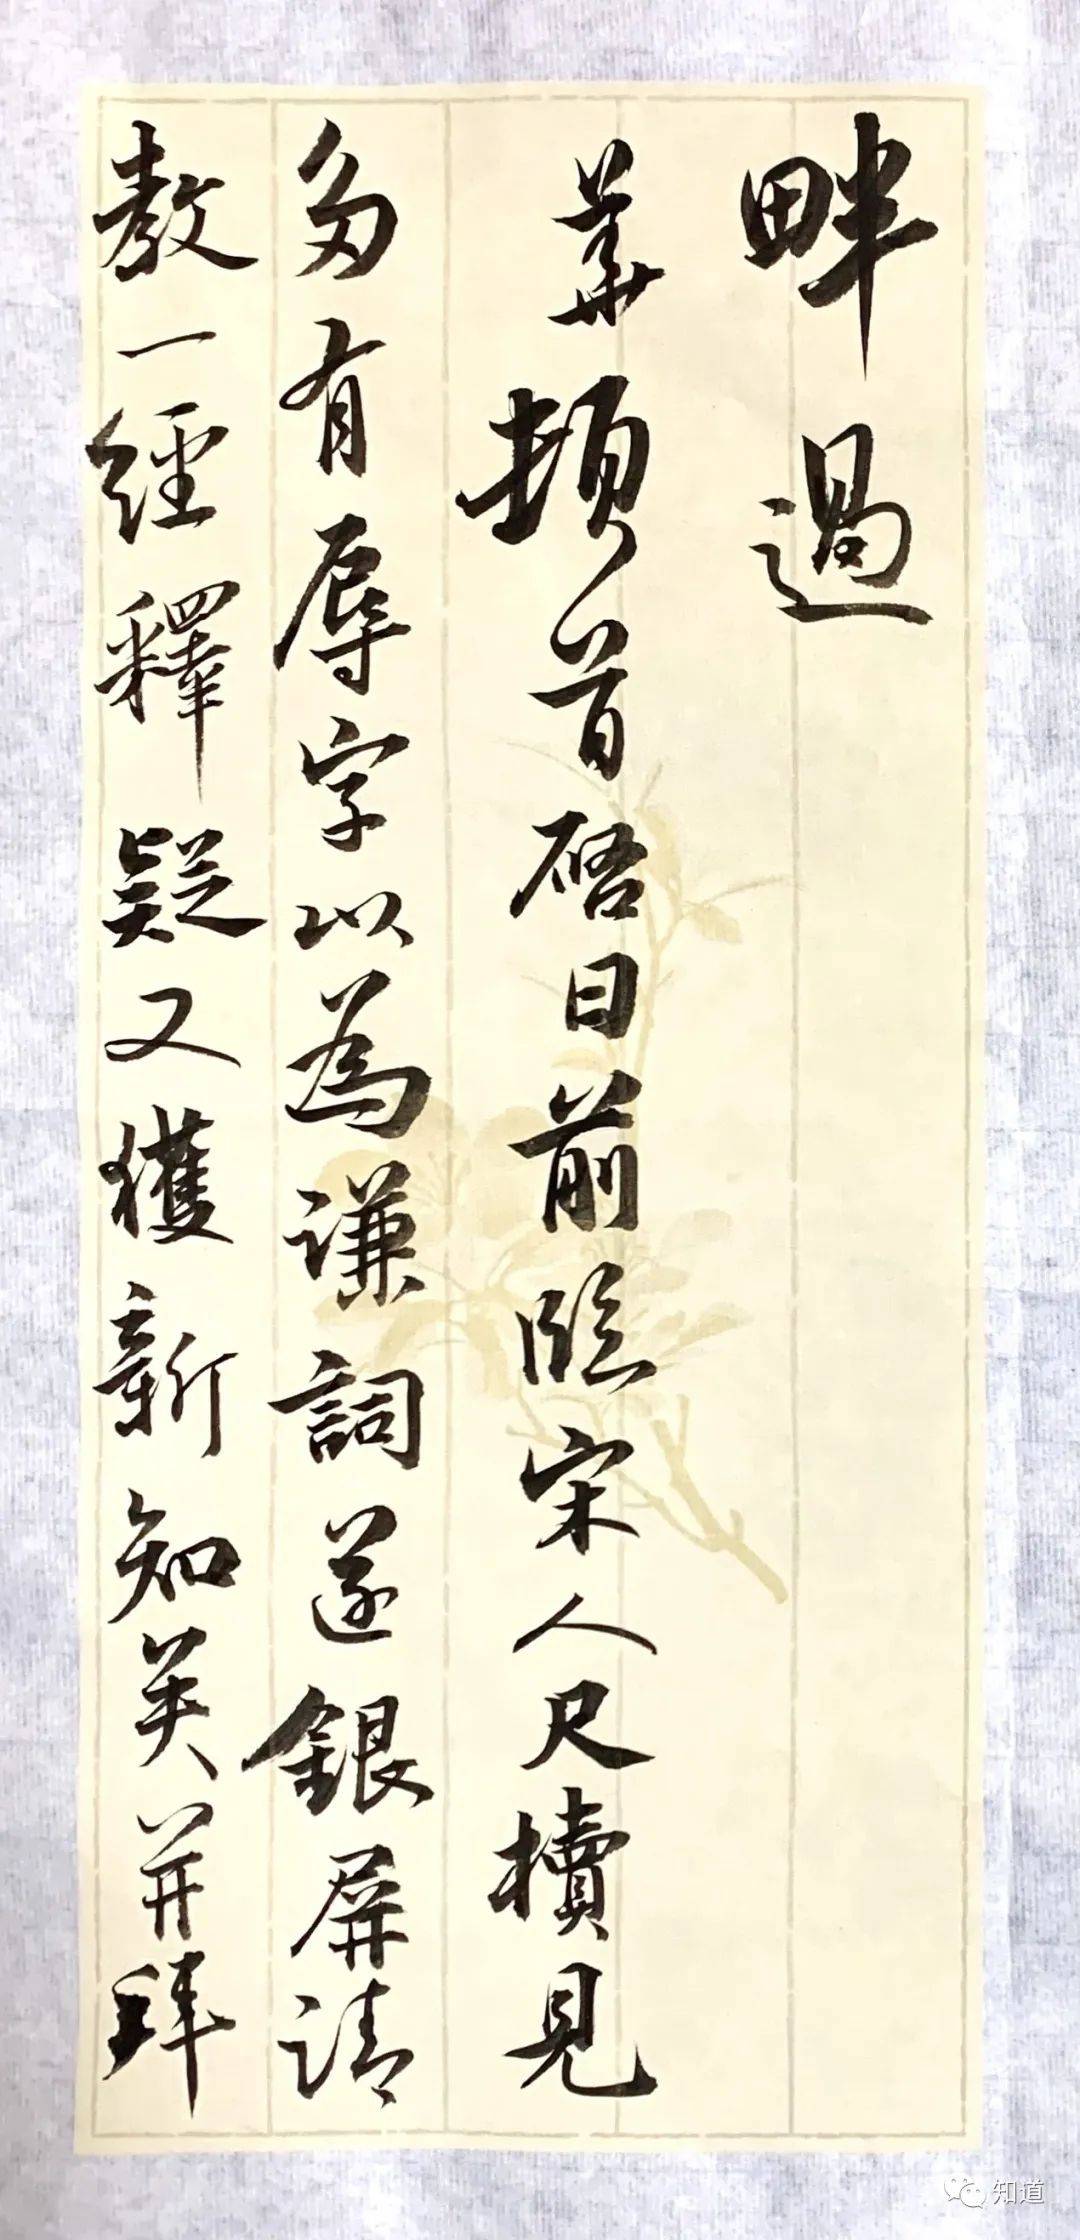 畔過
華頓首啓日前臨宋人尺牘見
多有辱字以為謙詞遂銀屏請
教一經釋疑又獲新知矣并拜
知道